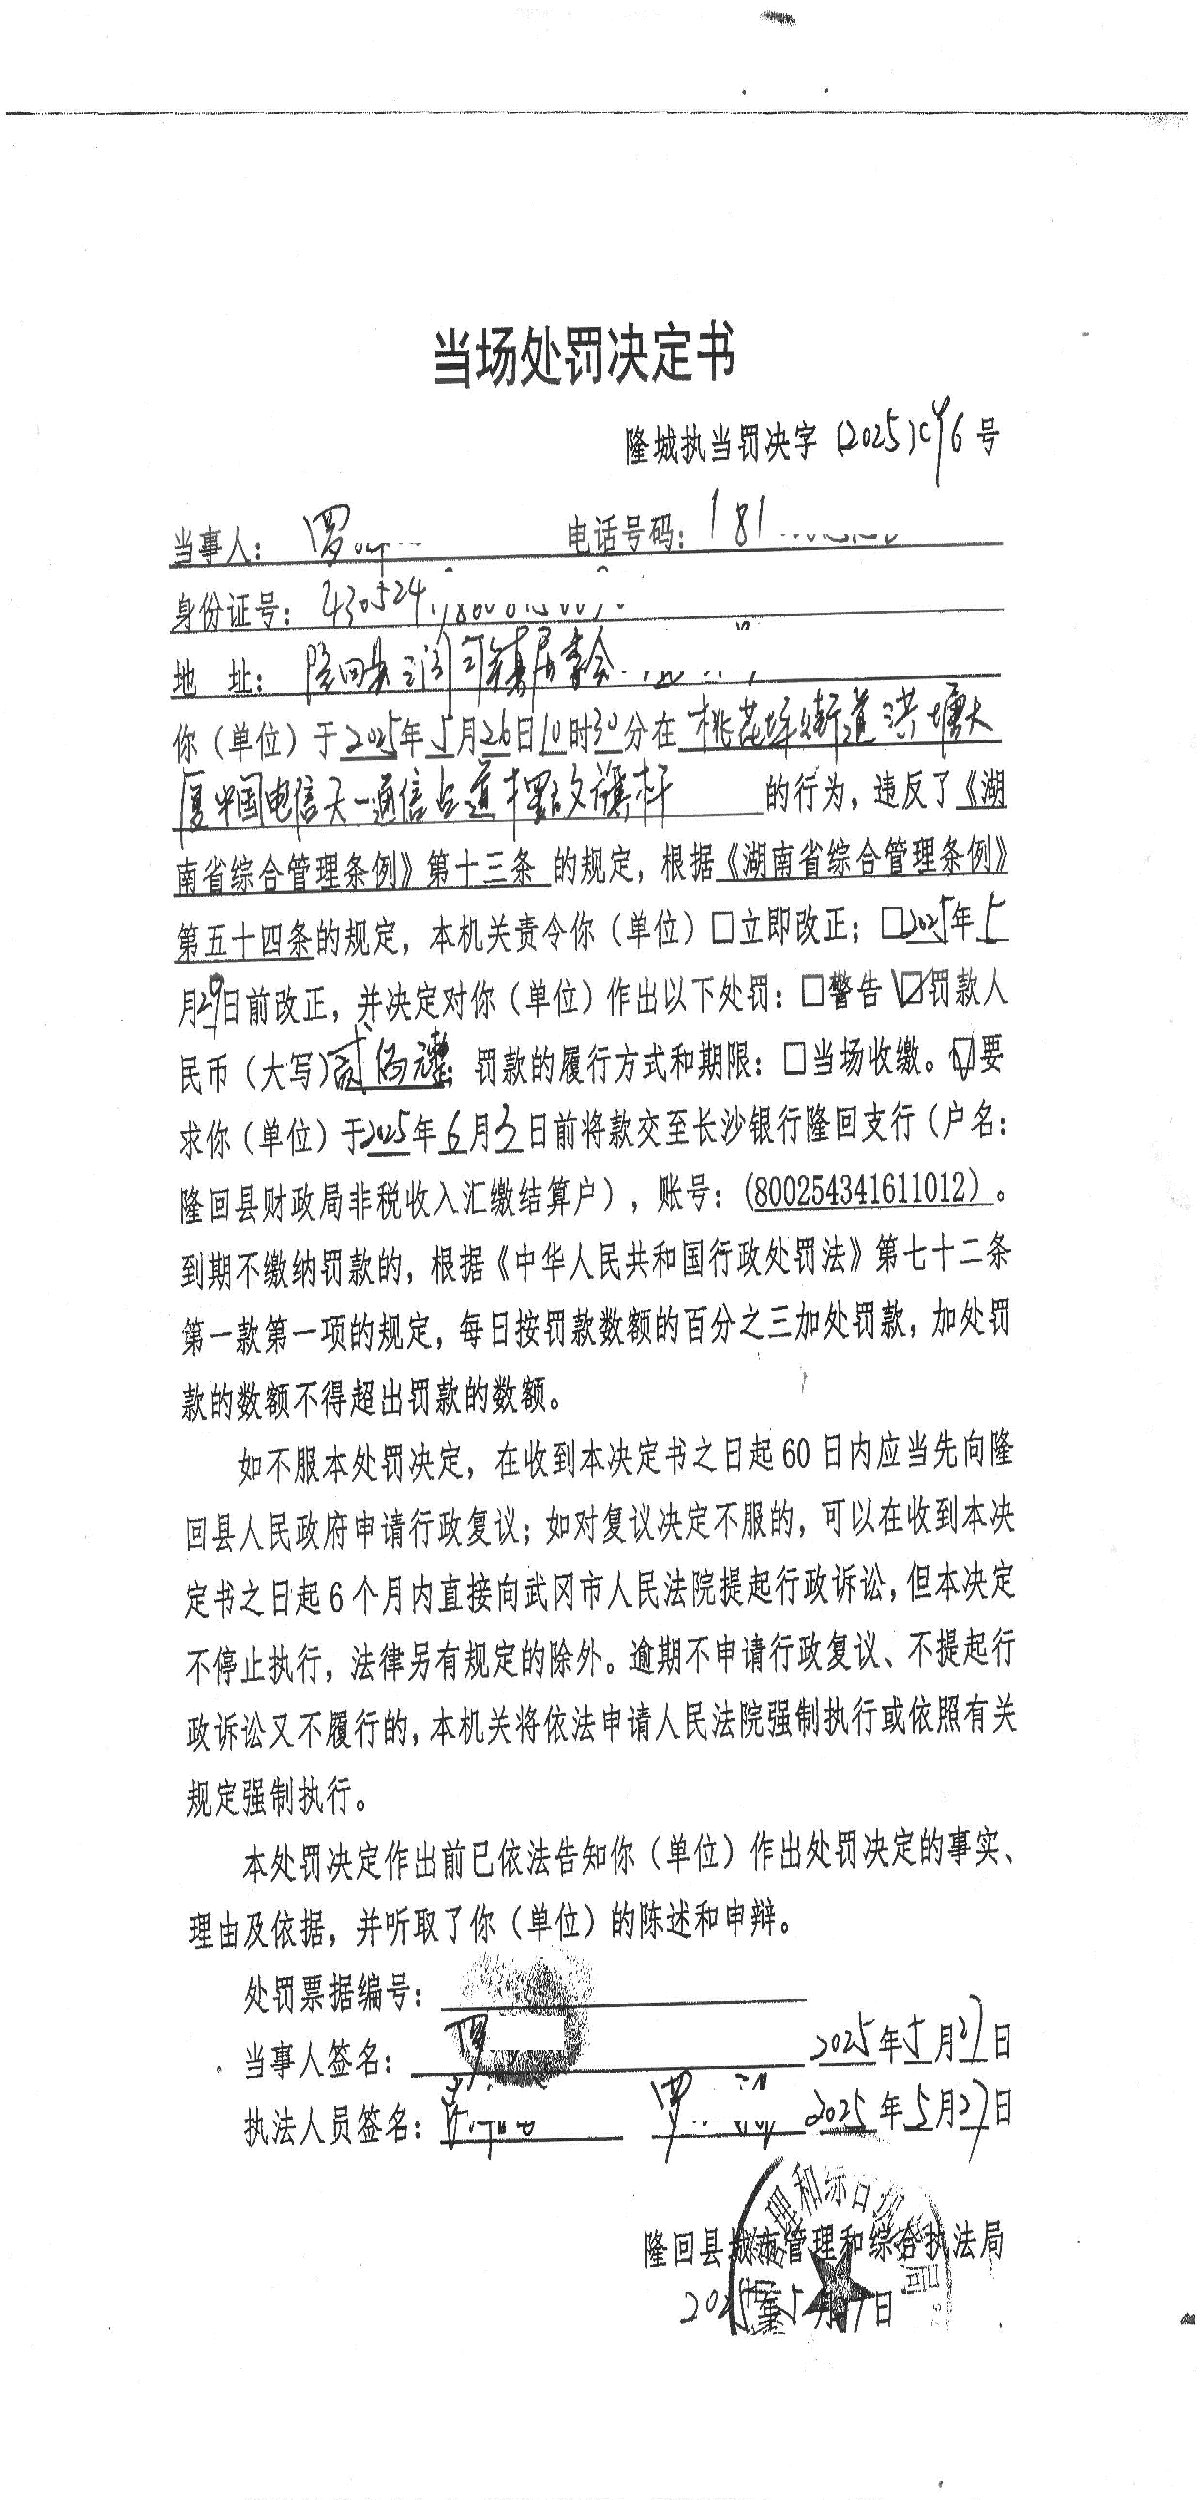 当场处罚决定书
隆城执当罚决字(2025)C96号
当事人：罗 电话号码：181
身份证号：430524
地 址：隆回县三阁司镇居委会
你（单位）于2025年5月26日10时30分在桃花坪街道洪塘大
厦中国电信天一通信占道摆放旗杆 的行为，违反了《湖
南省综合管理条例》第十三条 的规定，根据《湖南省综合管理条例》
第五十四条的规定，本机关责令你（单位）□立即改正；□2025年5
月29日前改正，并决定对你（单位）作出以下处罚：□警告 ☑罚款人
民币（大写）贰佰元整；罚款的履行方式和期限：□当场收缴。☑要
求你（单位）于2025年6月3日前将款交至长沙银行隆回支行（户名：
隆回县财政局非税收入汇缴结算户），账号：（800254341611012）。
到期不缴纳罚款的，根据《中华人民共和国行政处罚法》第七十二条
第一款第一项的规定，每日按罚款数额的百分之三加处罚款，加处罚
款的数额不得超出罚款的数额。
如不服本处罚决定，在收到本决定书之日起60日内应当先向隆
回县人民政府申请行政复议；如对复议决定不服的，可以在收到本决
定书之日起6个月内直接向武冈市人民法院提起行政诉讼，但本决定
不停止执行，法律另有规定的除外。逾期不申请行政复议、不提起行
政诉讼又不履行的，本机关将依法申请人民法院强制执行或依照有关
规定强制执行。
本处罚决定作出前已依法告知你（单位）作出处罚决定的事实、
理由及依据，并听取了你（单位）的陈述和申辩。
处罚票据编号：
当事人签名：罗 2025年5月27日
执法人员签名： 罗 2025年5月27日
隆回县城市管理和综合执法局
2025年5月27日